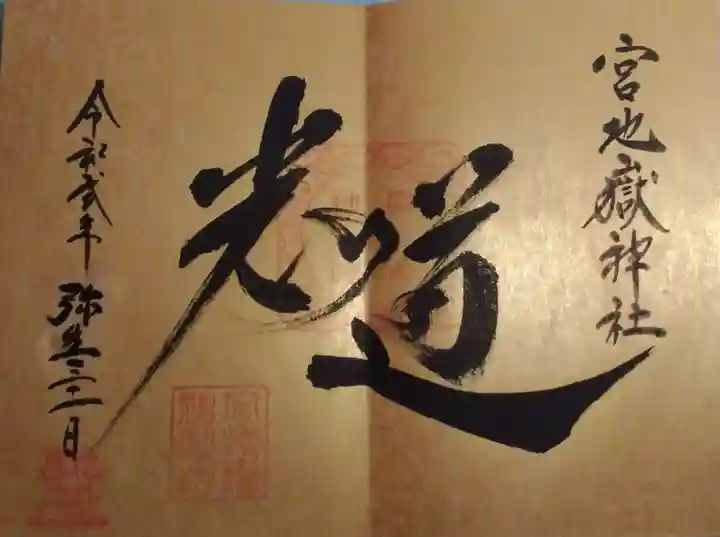 宮地嶽神社
光の道
令和弐年 弥生三十一日